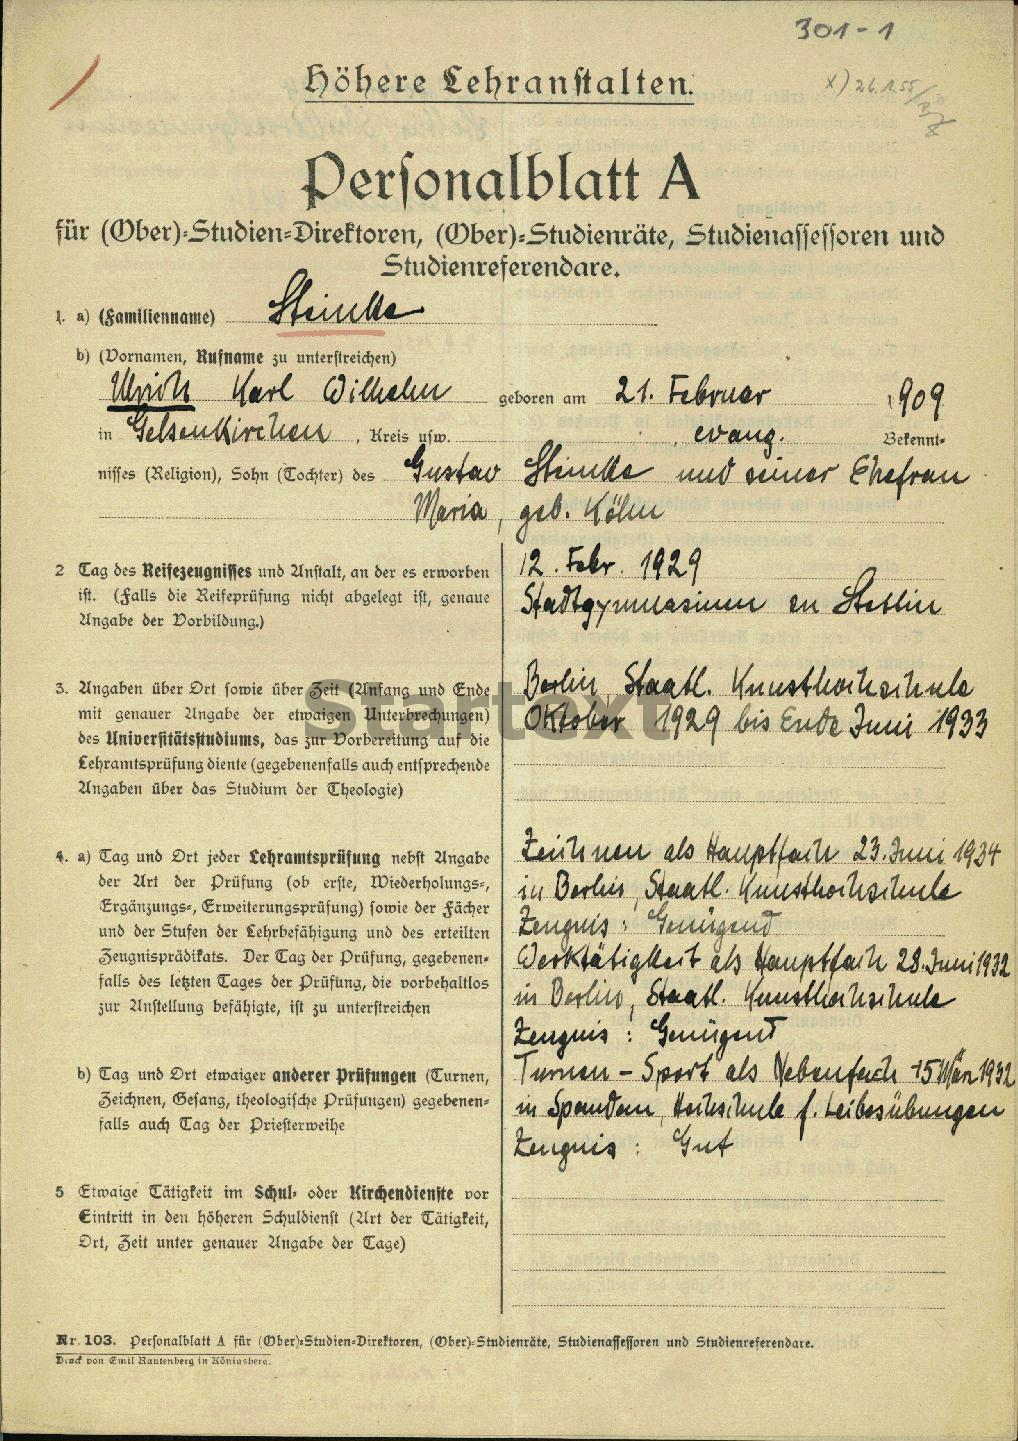 301-1
Höhere Lehranstalten.
x) 26.1.55
Personalblatt A
für (Ober)-Studien-Direktoren, (Ober)-Studienräte, Studienassessoren und
Studienreferendare.
1. a) (Familienname) Steinke
b) (Vornamen, Rufname zu unterstreichen)
Ulrich Karl Wilhelm geboren am 21. Februar 1909
in Gelsenkirchen, Kreis usw. , evang. Bekennt-
nisses (Religion), Sohn (Tochter) des Gustav Steinke und seiner Ehefrau
Maria, geb. Köhn
2 Tag des Reifezeugnisses und Anstalt, an der es erworben
ist. (Falls die Reifeprüfung nicht abgelegt ist, genaue
Angabe der Vorbildung.)
12. Febr. 1929
Stadtgymnasium in Stettin
3. Angaben über Ort sowie über Zeit (Anfang und Ende
mit genauer Angabe der etwaigen Unterbrechungen)
des Universitätsstudiums, das zur Vorbereitung auf die
Lehramtsprüfung diente (gegebenenfalls auch entsprechende
Angaben über das Studium der Theologie)
Berlin, Staatl. Kunsthochschule
Oktober 1929 bis Ende Juni 1933
Startext
4. a) Tag und Ort jeder Lehramtsprüfung nebst Angabe
der Art der Prüfung (ob erste, Wiederholungs-,
Ergänzungs-, Erweiterungsprüfung) sowie der Fächer
und der Stufen der Lehrbefähigung und des erteilten
Zeugnisprädikats. Der Tag der Prüfung, gegebenen-
falls des letzten Tages der Prüfung, die vorbehaltlos
zur Anstellung befähigte, ist zu unterstreichen
Zeichnen als Hauptfach 23. Juni 1934
in Berlin, Staatl. Kunsthochschule
Zeugnis: Genügend
Werktätigkeit als Hauptfach 28. Juni 1932
in Berlin, Staatl. Kunsthochschule
Zeugnis: Genügend
b) Tag und Ort etwaiger anderer Prüfungen (Turnen,
Zeichnen, Gesang, theologische Prüfungen) gegebenen-
falls auch Tag der Priesterweihe
Turnen - Sport als Nebenfach 15 März 1932
in Spandau, Hochschule f. Leibesübungen
Zeugnis: Gut
5 Etwaige Tätigkeit im Schul- oder Kirchendienste vor
Eintritt in den höheren Schuldienst (Art der Tätigkeit,
Ort, Zeit unter genauer Angabe der Tage)
Nr. 103. Personalblatt A für (Ober)-Studien-Direktoren, (Ober)-Studienräte, Studienassessoren und Studienreferendare.
Druck von Emil Rautenberg in Königsberg.